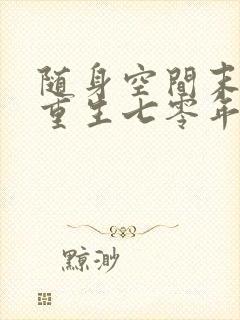 随身空間末
重生七零年
黥渺